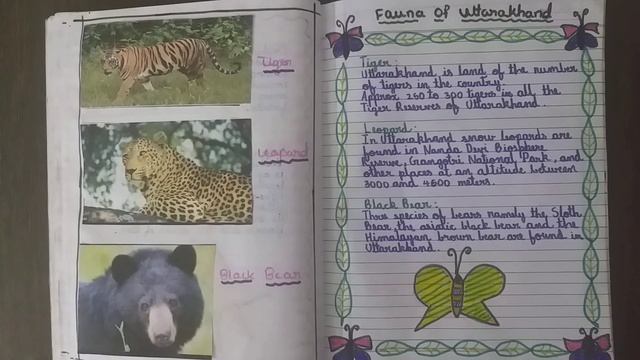 Tiger
Leopard
Black Bear
Fauna of Uttarakhand
Tiger:
Uttarakhand is land of the number
of tigers in the country.
Approx 250 to 300 tigers in all the
Tiger Reserves of Uttarakhand.
Leopard:
In Uttarakhand snow leopards are
found in Nanda Devi Biosphere
Reserve, Gangotri National Park, and
other places at an altitude between
3000 and 4600 meters.
Black Bear:
Three species of bears namely the Sloth
Bear, the asiatic black bear and the
Himalayan brown bear are found in
Uttarakhand.